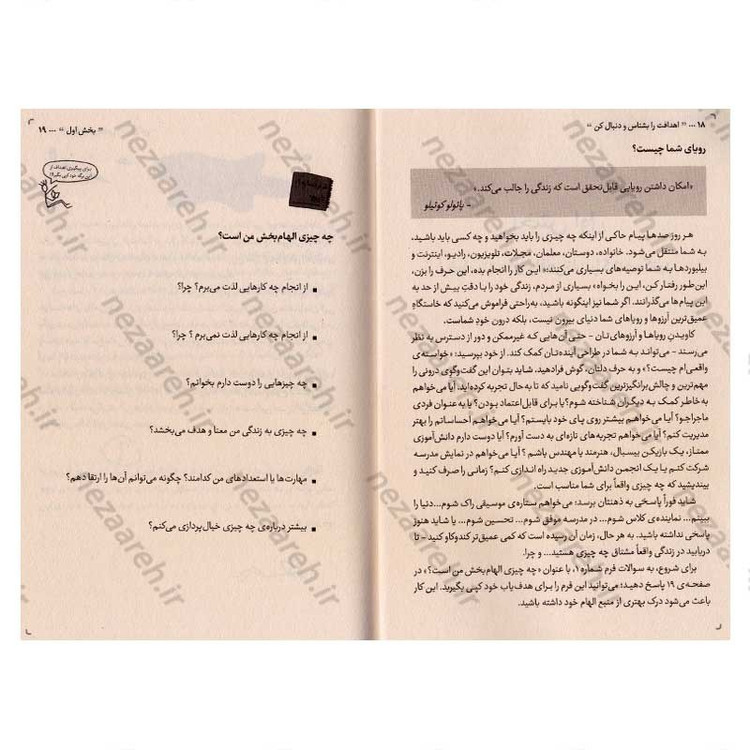 ۱۸ ... " اهدافت را بشناس و دنبال کن "
رویای شما چیست؟
«امکان داشتن رویایی قابل‌تحقق است که زندگی را جالب می‌کند.»
- پائولو کوئیلو
هر روز صدها پیام حاکی از اینکه چه چیزی را باید بخواهید و چه کسی باید باشید،
به شما منتقل می‌شود. خانواده، دوستان، معلمان، مجلات، تلویزیون، رادیو، اینترنت و
بیلبوردها به شما توصیه‌های بسیاری می‌کنند: «این کار را انجام بده، این حرف را بزن،
این‌طور رفتار کن، این را بخواه» بسیاری از مردم، زندگی خود را با دقتِ بیش از حد به
این پیام‌ها می‌گذرانند. اگر شما نیز اینگونه باشید، به‌راحتی فراموش می‌کنید که خاستگاهِ
عمیق‌ترین آرزوها و رویاهای شما دنیای بیرون نیست، بلکه درون خودِ شماست.
کاویدنِ رویاها و آرزوهای‌تان - حتی آن‌هایی که غیرممکن و دور از دسترس به نظر
می‌رسند - می‌تواند به شما در طراحی آینده‌تان کمک کند. از خود بپرسید: «خواسته‌ی
واقعی‌ام چیست؟» و به حرف دلتان، گوش فرادهید. شاید بتوان این گفت‌وگوی درونی را
مهم‌ترین و چالش‌برانگیزترین گفت‌وگویی نامید که تا به حال تجربه کرده‌اید. آیا می‌خواهم
به خاطر کمک به دیگران شناخته شوم؟ یا برای قابل اعتماد بودن؟ یا به عنوان فردی
ماجراجو؟ آیا می‌خواهم بیشتر روی پای خود بایستم؟ آیا می‌خواهم احساساتم را بهتر
مدیریت کنم؟ آیا می‌خواهم تجربه‌های تازه‌ای به دست آورم؟ آیا دوست دارم دانش‌آموزی
ممتاز، یک بازیکن بیسبال، هنرمند یا مهندس باشم؟ آیا می‌خواهم در نمایش مدرسه
شرکت کنم یا یک انجمن دانش‌آموزی جدید راه اندازی کنم؟ زمانی را صرف کنید و
بیندیشید که چه چیزی واقعاً برای شما مناسب است.
شاید فوراً پاسخی به ذهنتان برسد: می‌خواهم ستاره‌ی موسیقی راک شوم... دنیا را
ببینم... نماینده‌ی کلاس شوم... در مدرسه موفق شوم... تحسین شوم... یا شاید هنوز
پاسخی نداشته باشید. به هر حال، زمان آن رسیده است که کمی عمیق‌تر کندوکاو کنید - تا
دریابید در زندگی واقعاً مشتاق چه چیزی هستید... و چرا.
برای شروع، به سوالات فرم شماره ۱، با عنوان «چه چیزی الهام‌بخش من است؟» در
صفحه‌ی ۱۹ پاسخ دهید؛ می‌توانید این فرم را برای هدف‌یاب خود کپی بگیرید. این کار
باعث می‌شود درک بهتری از منبع الهام خود داشته باشید.
" بخش اول " ... ۱۹
برای پیگیری اهداف از
این برگه خود کپی بگیر!
چه چیزی الهام‌بخش من است؟
▪ از انجام چه کارهایی لذت می‌برم؟ چرا؟
▪ از انجام چه کارهایی لذت نمی‌برم ؟ چرا؟
▪ چه چیزهایی را دوست دارم بخوانم؟
▪ چه چیزی به زندگی من معنا و هدف می‌بخشد؟
▪ مهارت‌ها یا استعدادهای من کدامند؟ چگونه می‌توانم آن‌ها را ارتقا دهم؟
▪ بیشتر درباره‌ی چه چیزی خیال‌پردازی می‌کنم؟
nezaareh.ir